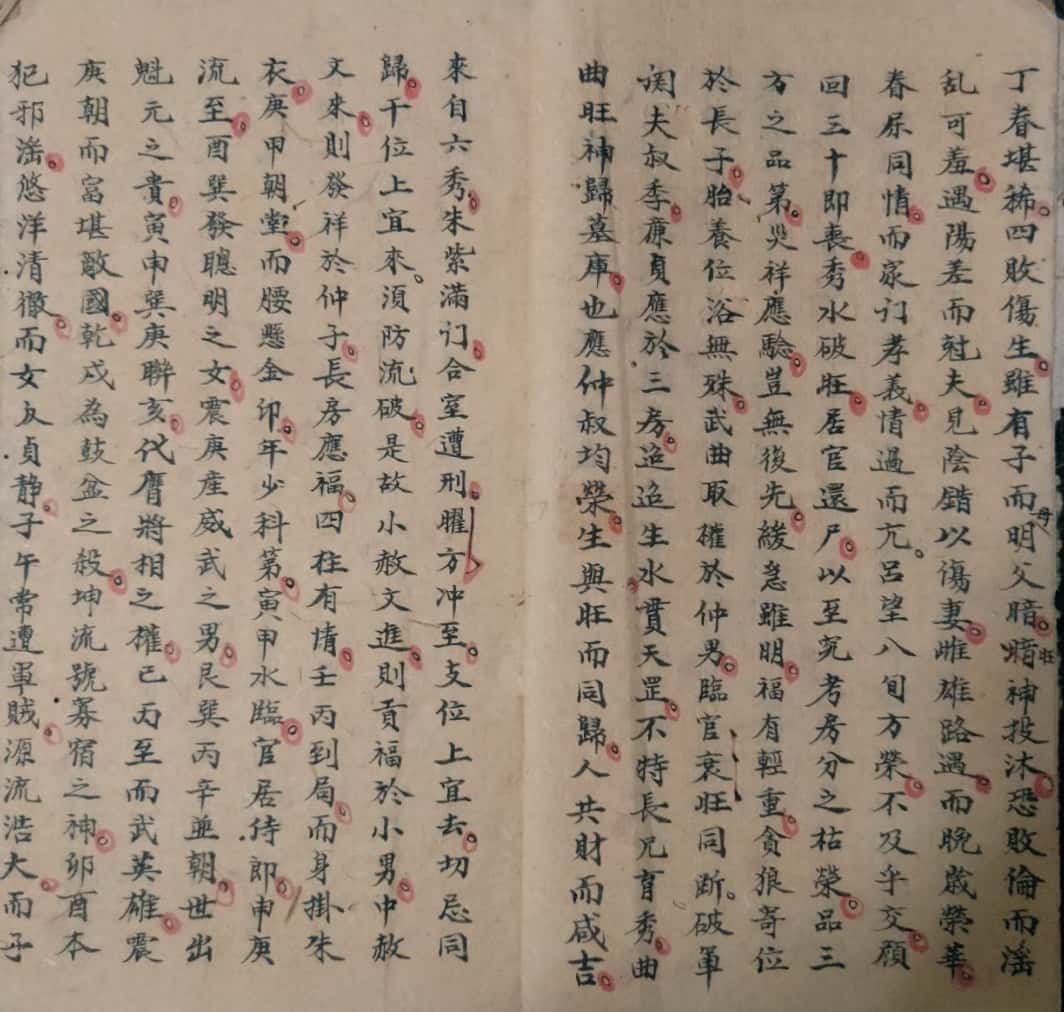 丁春堪稀四敗傷生雖有子而明父暗暗神投沐恐敗倫而滛
母
旺
乱可羞遇陽差而尅夫見陰錯以傷妻雌雄路遇而晚歲榮華
春尿同情而家订孝義情過而亢呂望八旬方榮不及乎交顔
回三十即丧秀水破旺居官還尸以至究考房分之枯榮品三
方之品第災祥應驗豈無後先緩急雖明福有輕重貪狼寄位
於長子胎養位浴無殊武曲取權於仲男臨官衰旺同断破軍
関夫叔季廉貞應於三房迨迨生水貫天罡不特長兄育秀曲
曲旺神歸墓庫也應仲叔均榮生與旺而同歸人共財而咸吉
來自六秀朱紫滿订合室遭刑曜方冲至支位上宜去切忌同
歸干位上宜來須防流破是故小赦文進則貢福於小男中赦
文來則發祥於仲子長房應福四柱有情壬丙到局而身掛朱
衣庚甲朝堂而腰懸金印年少科第寅甲水臨官居侍郎申庚
流至酉巽發聰明之女震庚産威武之男艮巽丙辛並朝世出
魁元之貴寅申巽庚聯亥代膺將相之權巳丙至而武英雄震
庚朝而富堪敵國乾戍為鼓盆之殺坤流號寡宿之神卯酉本
犯邪滛悠洋清徹而女友貞静子午常遭軍賊源流浩大而子